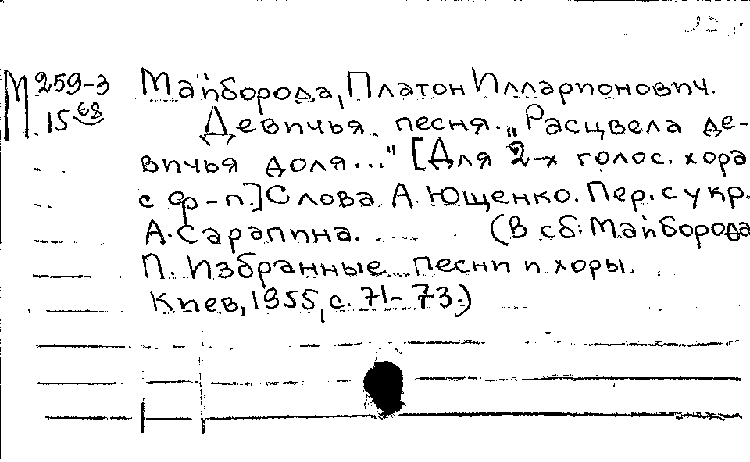 М 259-3 Майборода, Платон Илларионович.
15 68 Девичья песня. „Расцвела де-
вичья доля..." [Для 2-х голос. хора
с ф-п] Слова А. Ющенко. Пер. с укр.
А. Сарапина. (В сб: Майборода
П. Избранные песни и хоры.
Киев, 1955, с. 71-73.)